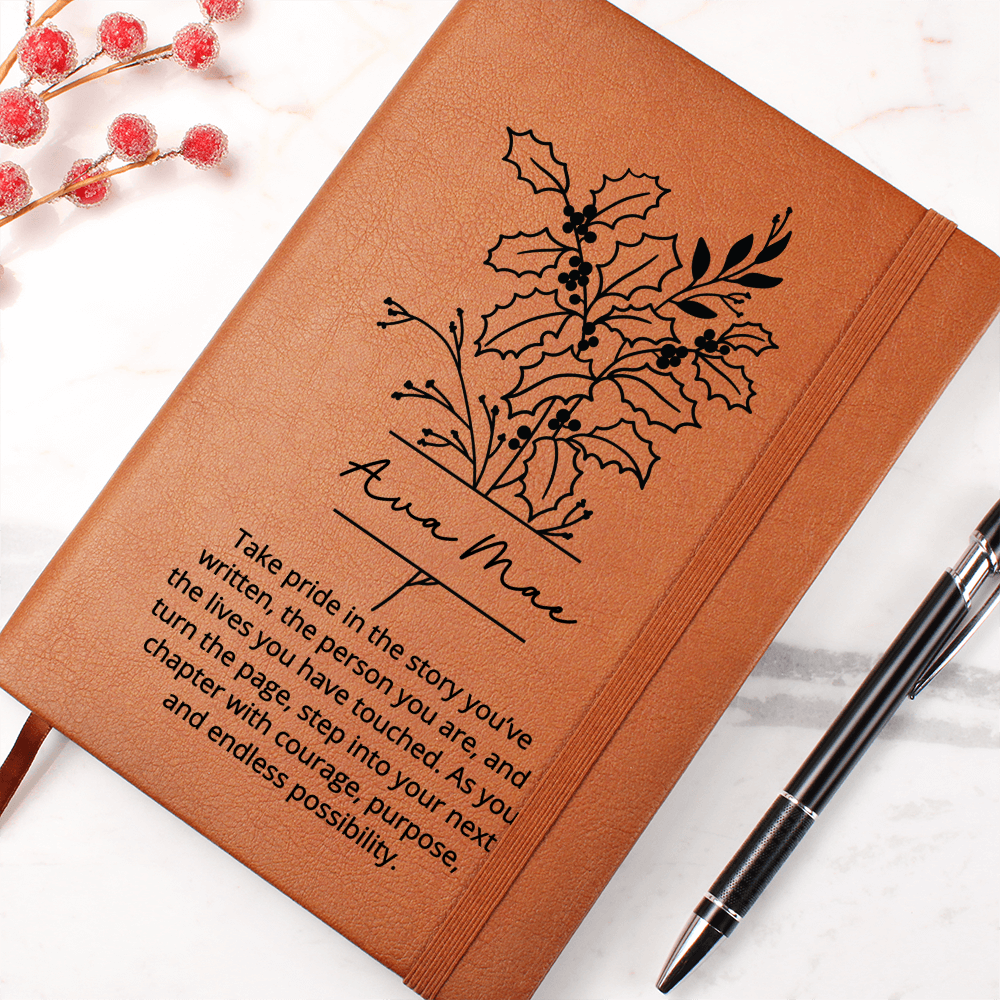 Ava Mae
Take pride in the story you've
written, the person you are, and
the lives you have touched. As you
turn the page, step into your next
chapter with courage, purpose,
and endless possibility.